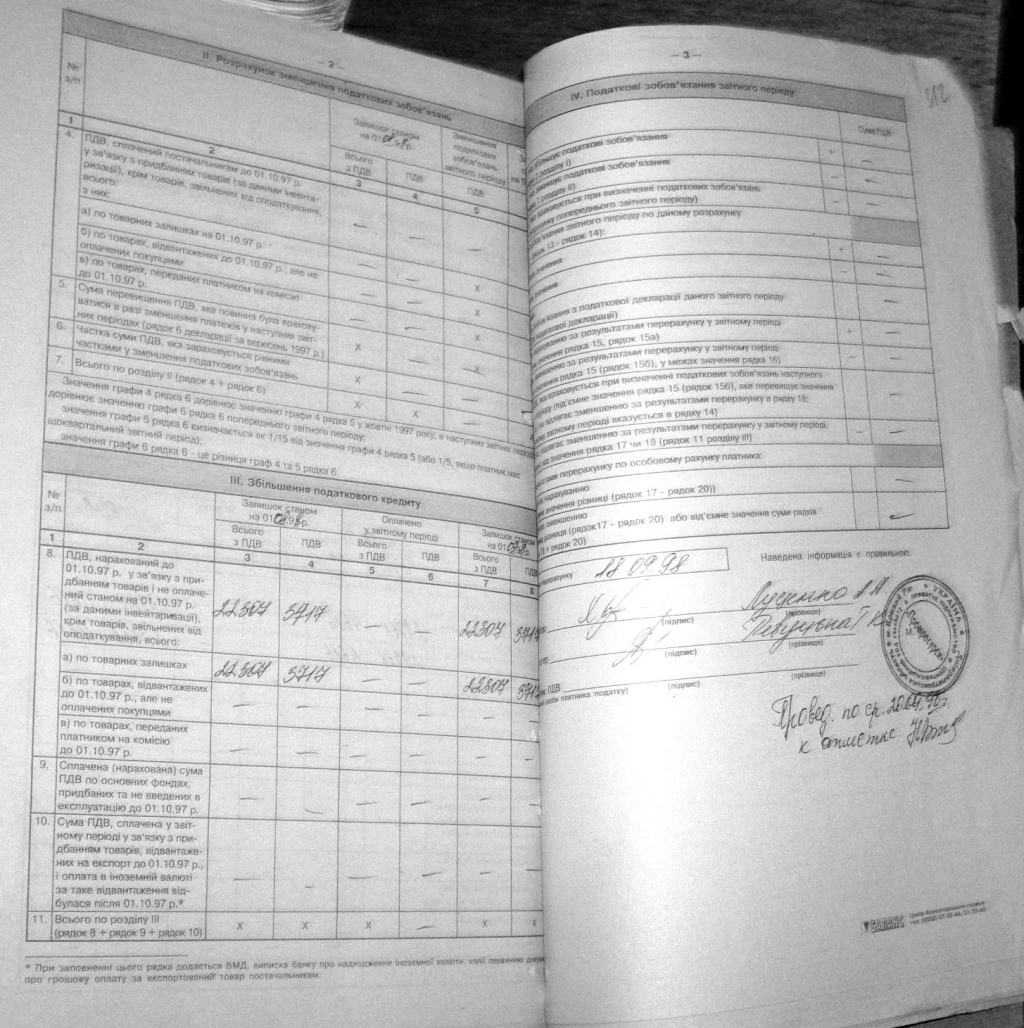 – 2 –
II. Розрахунок зменшення податкових зобов'язань
№
з/п
Залишок станом
на 01.08.98 р.
Зменшення
податкових
зобов'язань
звітного періоду
Всього
з ПДВ
ПДВ
ПДВ
1 2 3 4 5
4. ПДВ, сплачений постачальникам до 01.10.97 р.
у зв'язку з придбанням товарів (за даними інвента-
ризації), крім товарів, звільнених від оподаткування,
всього:
з них:
— — —
а) по товарних залишках на 01.10.97 р.
— — —
б) по товарах, відвантажених до 01.10.97 р., але не
оплачених покупцями
— — X
в) по товарах, переданих платником на комісію
до 01.10.97 р.
— — X
5. Сума перевищення ПДВ, яка повинна була врахову-
ватися в разі зменшення платежів у наступних звіт-
них періодах (рядок 6 декларації за вересень 1997 р.)
X — X
6. Частка суми ПДВ, яка зараховується рівними
частками у зменшення податкових зобов'язань
X — —
7. Всього по розділу II (рядок 4 + рядок 6)
X X —
Значення графи 4 рядка 6 дорівнює значенню графи 4 рядка 5 у жовтні 1997 року, в наступних звітних
дорівнює значенню графи 6 рядка 6 попереднього звітного періоду;
значення графи 5 рядка 6 визначається як 1/15 від значення графи 4 рядка 5 (або 1/5, якщо платник має
щоквартальний звітний період);
значення графи 6 рядка 6 - це різниця граф 4 та 5 рядка 6.
III. Збільшення податкового кредиту
№
з/п
Залишок станом
на 01.08.98 р.
Оплачено
у звітному періоді
Залишок станом
на 01.09.98
Всього
з ПДВ
ПДВ
Всього
з ПДВ
ПДВ
Всього
з ПДВ
ПДВ
1 2 3 4 5 6 7 8
8. ПДВ, нарахований до
01.10.97 р. у зв'язку з при-
дбанням товарів і не оплаче-
ний станом на 01.10.97 р.
(за даними інвентаризації),
крім товарів, звільнених від
оподаткування, всього:
22307 3717 — — 22307 3717
а) по товарних залишках
22307 3717 — — 22307 3717
б) по товарах, відвантажених
до 01.10.97 р., але не
оплачених покупцями
— — — — — —
в) по товарах, переданих
платником на комісію
до 01.10.97 р.
— — — — — —
9. Сплачена (нарахована) сума
ПДВ по основних фондах,
придбаних та не введених в
експлуатацію до 01.10.97 р.
— — — — — —
10. Сума ПДВ, сплачена у звіт-
ному періоді у зв'язку з при-
дбанням товарів, відвантаже-
них на експорт до 01.10.97 р.,
і оплата в іноземній валюті
за таке відвантаження від-
булася після 01.10.97 р.*
— — — — — —
11. Всього по розділу III
(рядок 8 + рядок 9 + рядок 10)
X X X — X X
* При заповненні цього рядка додається ВМД, виписка банку про надходження іноземної валюти, копії первинних
про грошову оплату за експортований товар постачальникам.
– 3 –
312
IV. Податкові зобов'язання звітного періоду
Сума ПДВ
збільшує податкові зобов'язання
розділу I) + —
зменшує податкові зобов'язання
розділу II) – —
враховується при визначенні податкових зобов'язань
попереднього звітного періоду) – —
зобов'язання звітного періоду по даному розрахунку
13 - рядок 14):
значення + —
значення – —
зобов'язання з податкової декларації даного звітного періоду
податкової декларації) —
за результатами перерахунку у звітному періоді
значення рядка 15, рядок 15а) + —
зменшенню за результатами перерахунку у звітному періоді
значення рядка 15 (рядок 15б), у межах значення рядка 16) – —
враховується при визначенні податкових зобов'язань наступного
(від'ємне значення рядка 15 (рядок 15б), яке перевищує значення
не підлягає зменшенню за результатами перерахунку в рядку 18;
звітному періоді вказується в рядку 14) —
підлягає зменшенню за результатами перерахунку у звітному періоді,
від значення рядка 17 чи 18 (рядок 11 розділу III) – —
перерахунку по особовому рахунку платника:
нарахуванню
значення різниці (рядок 17 - рядок 20)) —
зменшенню
різниця (рядок17 - рядок 20) або від'ємне значення суми рядків
18 + рядок 20) —
перерахунку 28 09.98
Наведена інформація є правильною.
(підпис) (прізвище)
(підпис) (прізвище)
ПДВ
особи платника податку) (підпис) (прізвище)
УКРАЇНА
Провед. по ср. 20.09.98г.
к отметке
БАЛАНС